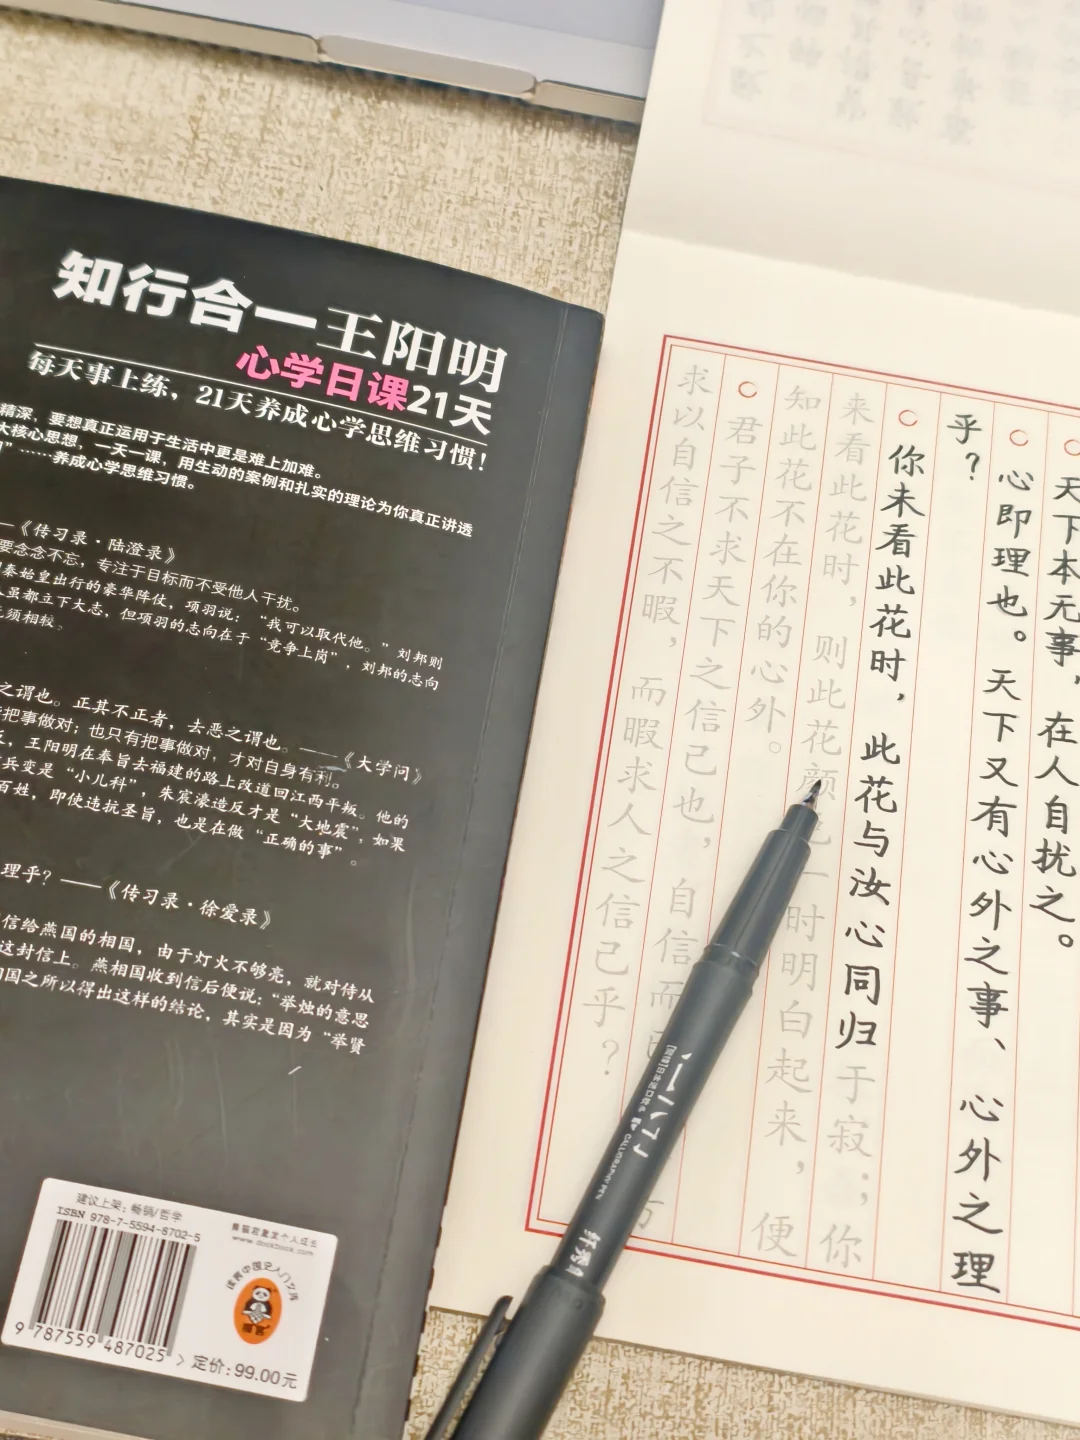 知行合一王阳明
心学日课21天
每天事上练，21天养成心学思维习惯！
精深，要想真正运用于生活中更是难上加难。
大核心思想，一天一课，用生动的案例和扎实的理论为你真正讲透
”……养成心学思维习惯。
——《传习录·陆澄录》
要念念不忘，专注于目标而不受他人干扰。
秦始皇出行的豪华阵仗，项羽说：“我可以取代他。”刘邦则
虽都立下大志，但项羽的志向在于“竞争上岗”，刘邦的志向
无须相较。
之谓也。正其不正者，去恶之谓也。——《大学问》
把事做对；也只有把事做对，才对自身有利。
，王阳明在奉旨去福建的路上改道回江西平叛。他的
兵变是“小儿科”，朱宸濠造反才是“大地震”，如果
百姓，即使违抗圣旨，也是在做“正确的事”。
理乎？——《传习录·徐爱录》
信给燕国的相国，由于灯火不够亮，就对侍从
这封信上。燕相国收到信后便说：“举烛的意思
国之所以得出这样的结论，其实是因为“举贤
建议上架：畅销/哲学
ISBN 978-7-5594-8702-5
熊猫君激发个人成长
www.dookbook.com
读客中国史入门文库
读客
9 787559 487025 >
定价：99.00元
天下本无事，在人自扰之。
心即理也。天下又有心外之事、心外之理
乎？
你未看此花时，此花与汝心同归于寂；你
来看此花时，则此花颜色一时明白起来，便
知此花不在你的心外。
君子不求天下之信己也，自信而已
求以自信之不暇，而暇求人之信己乎？
CALLIGRAPHY PEN